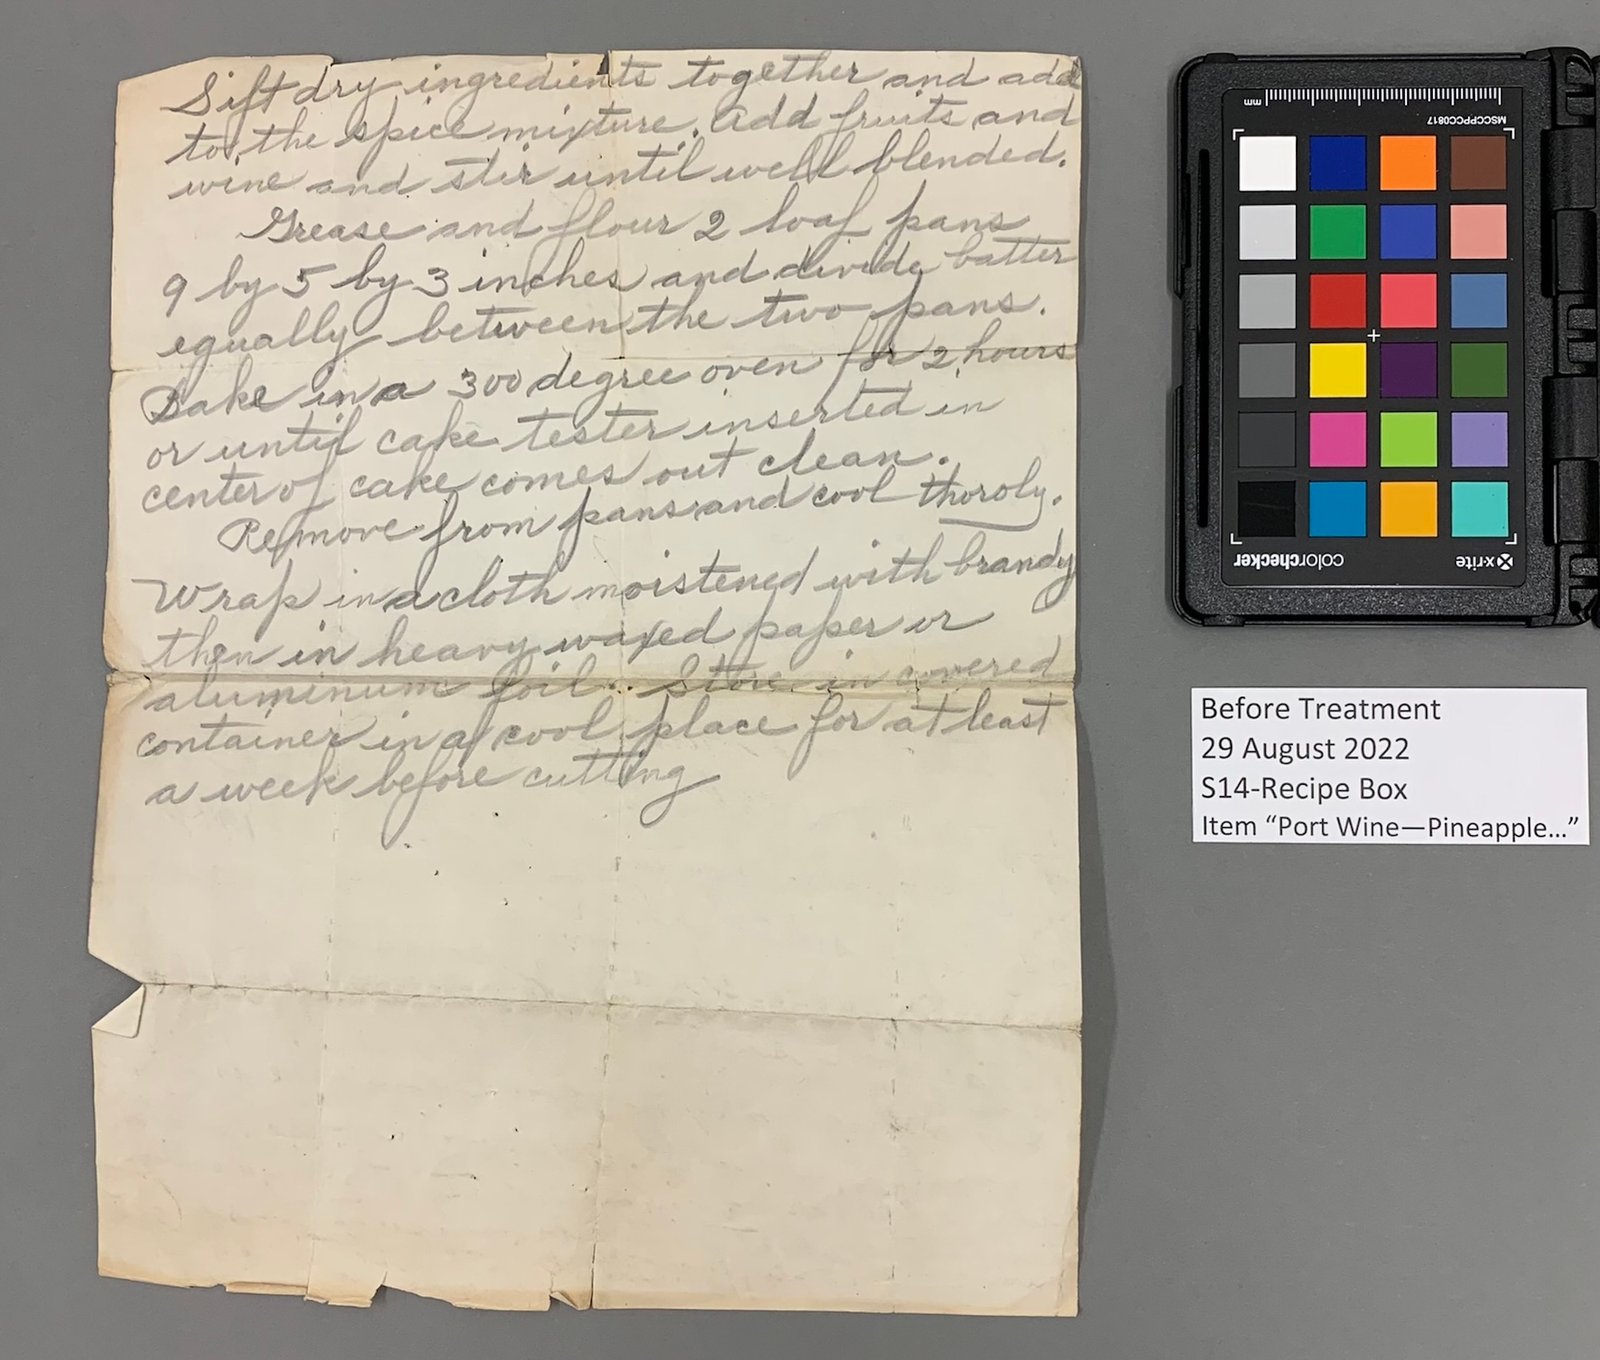 Sift dry ingredients together and add
to the spice mixture. Add fruits and
wine and stir until well blended.
Grease and flour 2 loaf pans
9 by 5 by 3 inches and divide batter
equally between the two pans.
Bake in a 300 degree oven for 2 hours
or until cake tester inserted in
center of cake comes out clean.
Remove from pans and cool thoroly.
Wrap in a cloth moistened with brandy
then in heavy waxed paper or
aluminum foil. Store in covered
container in a cool place for at least
a week before cutting
mm
MSCCPPCC0817
colorchecker
x-rite
Before Treatment
29 August 2022
S14-Recipe Box
Item “Port Wine—Pineapple...”